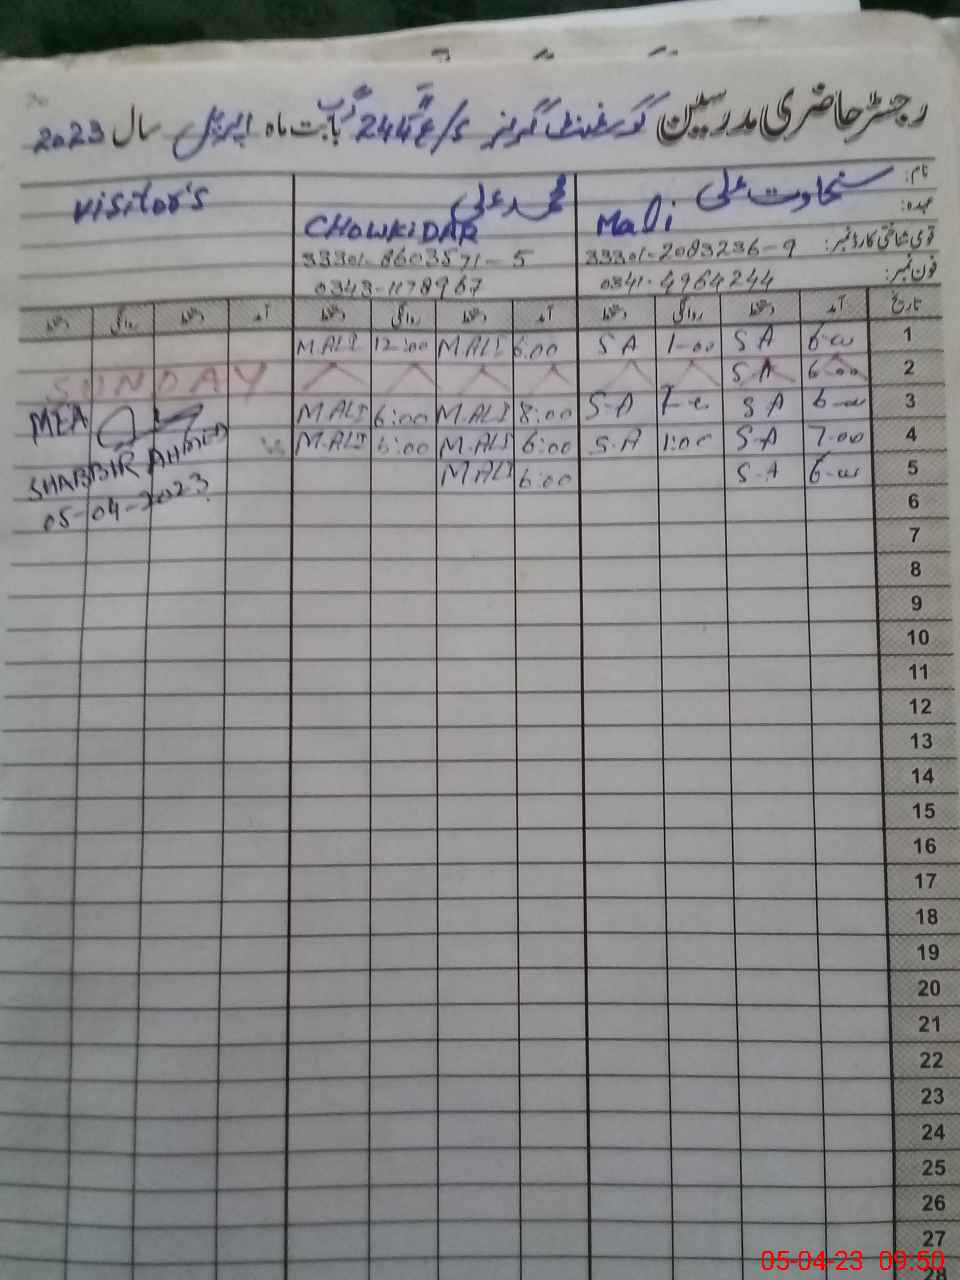 رجسٹر حاضری مدرسین گورنمنٹ گرلز 244 گ ب بابت ماہ اپریل سال 2023
نام: سخاوت علی محمد علی visitor's
عہدہ: Mali CHOWKIDAR
قومی شناختی کارڈ نمبر: 33301-2083236-9 33301-8603571-5
فون نمبر: 0341-4964244 0343-1178967
تاریخ آمد دستخط روانگی دستخط آمد دستخط روانگی دستخط آمد دستخط روانگی دستخط
1 6-00 S A 1-00 S A 6:00 M.ALI 12:00 M.ALI
2 6:00 S.A SUNDAY
3 6-00 S A S-A 8:00 M.ALI 6:00 M.ALI
4 7-00 S-A 1:00 S-A 6:00 M.ALI 6:00 M.ALI
5 6-00 S-A 6:00 M.ALI
MEA
SHABBIR AHMED
05-04-2023
6
7
8
9
10
11
12
13
14
15
16
17
18
19
20
21
22
23
24
25
26
27
28
05-04-23 09:50